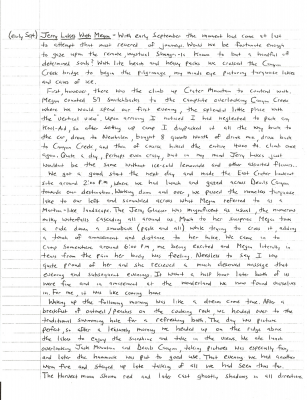 (early Sept) Jerry Lakes With Megan - With early September the moment had come at last
to attempt that most revered of journeys. Would we be fortunate enough
to gaze upon the remote, mystical Shangri-la known to but a handful of
determined souls? With life herein and heavy packs we crossed the Canyon
Creek bridge to begin the pilgrimage, my minds eye picturing turquoise lakes
and caves of ice.
First, however, there was the climb up Crater Mountain to contend with.
Megan counted 57 switchbacks to the Campsite overlooking Canyon Creek
where we would spend our first evening, the splendid little place with
the "vertical view". Upon arriving I noticed I had neglected to pack any
so after setting up camp I dispatched all the way back to
the car, drove to Mazama, bought 8 quarts worth of drink mix, drove back
to Canyon Creek, and then of course hiked the entire 4000 ft climb once
again. Quite a day, perhaps even crazy, but in my mind Jerry Lakes just
wouldn't be the same without iced lemonade and other assorted flavors.
We got a good start the next day and made the East Crater lookout
site around 2:00 P.M. where we had lunch and gazed across Devils Canyon
towards our destination. Waltzing down and over we passed the nameless turquoise
lake to our left and scrambled across what Megan referred to as a
Martian-like landscape. The Jerry Glacier was magnificent as usual, the numerous
milky waterfalls cascading all around us. Much to her surprise Megan took
a ride down a snowbank (pack and all) while trying to cross it, adding
a touch of amusement and distance to her hike. We came in to
Camp somewhere around 6:00 P.M. me being excited and Megan literally in
tears from the pain her body was feeling. Needless to say I was
quite proud of her and she received a much deserved massage that
evening and subsequent evenings. It wasn't a half hour later both of us
were fine and in amazement at the wonderland we now found ourselves
in. For me, it was like coming home.
Waking up the following morning was like a dream come true. After a
breakfast of oatmeal/peaches on the cooking rock we headed over to the
traditional swimming hole for a refreshing bath. The day was picture
perfect so after a leisurely morning we headed up on the ridge above
the lakes to enjoy the sunshine and take in the views. We ate lunch
overlooking Jack Mountain and Devils Canyon, taking pictures was especially fun,
and later the hammock was put to good use. That evening we had another
warm fire and stayed up late talking of all we had seen thus far.
The Harvest Moon shone red and later cast ghostly shadows in all directions